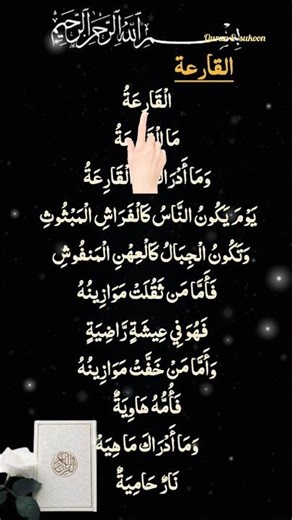 بِسْمِ اللهِ الرَّحْمٰنِ الرَّحِيْمِ
Quran & sukoon
القارعة
الْقَارِعَةُ
مَا الْقَارِعَةُ
وَمَا أَدْرَاكَ الْقَارِعَةُ
يَوْمَ يَكُونُ النَّاسُ كَالْفَرَاشِ الْمَبْثُوثِ
وَتَكُونُ الْجِبَالُ كَالْعِهْنِ الْمَنفُوشِ
فَأَمَّا مَن ثَقُلَتْ مَوَازِينُهُ
فَهُوَ فِي عِيشَةٍ رَّاضِيَةٍ
وَأَمَّا مَنْ خَفَّتْ مَوَازِينُهُ
فَأُمُّهُ هَاوِيَةٌ
وَمَا أَدْرَاكَ مَا هِيَهْ
نَارٌ حَامِيَةٌ